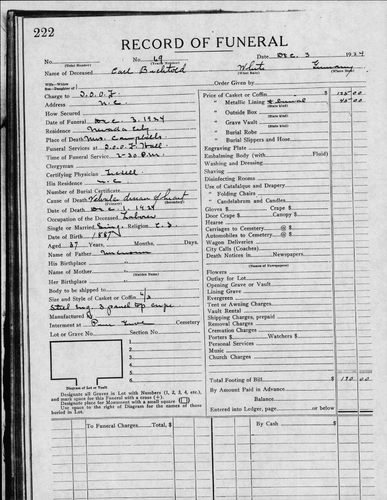 222
RECORD OF FUNERAL
No. 69 Date Dec. 3 1924
(Total No.) (Yearly No.) (Date of Entry)
Name of Deceased White
(What Race) (Where Born)
Wife—Widow
Son—Daughter of Order Given by
Charge to I.O.O.F. Price of Casket or Coffin $ 125 00
Address N.C. " Metallic Lining 45 00
How Secured " Outside Box
Date of Funeral Dec 3, 1924 " Grave Vault
Residence Nevada City " Burial Robe
Place of Death Mrs. Campbells " Burial Slippers and Hose
Funeral Services at I.O.O.F. Hall Engraving Plate
Time of Funeral Service 2-30 P.M. Embalming Body (with Fluid)
Clergyman Washing and Dressing
Certifying Physician Shaving
His Residence N.C. Disinfecting Rooms
Number of Burial Certificate Use of Catafalque and Drapery
Cause of Death Valvular disease of heart " Folding Chairs
Date of Death Dec 1, 1924 " Candelabrum and Candles
Occupation of the Deceased Laborer Gloves $ Crape $
Single or Married Sing. Religion Door Crape $ Canopy $
Date of Birth 1887 Hearse
Aged 37 Years, Months, Days. Carriages to Cemetery @ $
Name of Father Unknown Automobiles to Cemetery @ $
His Birthplace Wagon Deliveries
Name of Mother City Calls (Coaches)
(Maiden Name) Death Notices in Newspapers
Her Birthplace (Names of Newspapers)
Body to be shipped to Flowers
Size and Style of Casket or Coffin 6/3 Outlay for Lot
Opening Grave or Vault
Manufactured by Lining Grave
Interment at Pine Grove Cemetery Evergreen
Lot or Grave No. Section No. Tent or Awning Charges
1. Vault Rental
2. Shipping Charges, prepaid
3. Removal Charges
4. Cremation Charges
5. Porters $ Watchers $
6. Personal Services
Diagram of Lot or Vault Music
Church Charges
Designate all Graves in Lot with Numbers (1, 2, 3, 4, etc.), and mark space for this Funeral with a cross (+)
Designate place for Monument with a small square
Use space to the right of Diagram for the names of those buried in Lot.
Total Footing of Bill $ 170 00
By Amount Paid in Advance
Balance
Entered into Ledger, page or below
To Funeral Charges Total, $ By Cash $